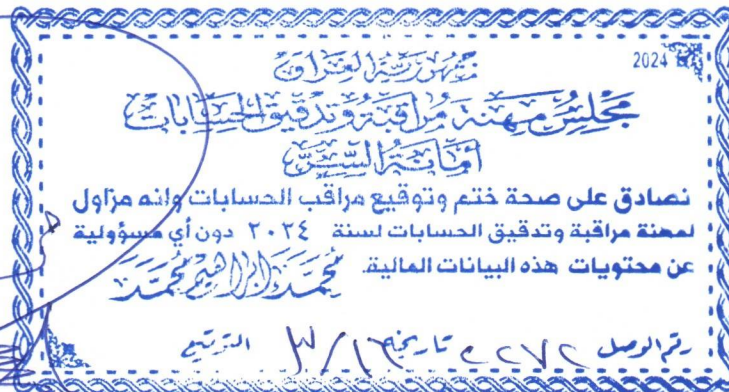 2024
جمهورية العراق
مجلس مهنة مراقبة وتدقيق الحسابات
أمانة السر
نصادق على صحة ختم وتوقيع مراقب الحسابات وانه مزاول
لمهنة مراقبة وتدقيق الحسابات لسنة ٢٠٢٤ دون أي مسؤولية
عن محتويات هذه البيانات المالية.
محمد ابراهيم محمد
رقم الوصل ٢٢٧٢ تاريخه ٣/١٦ التوقيع